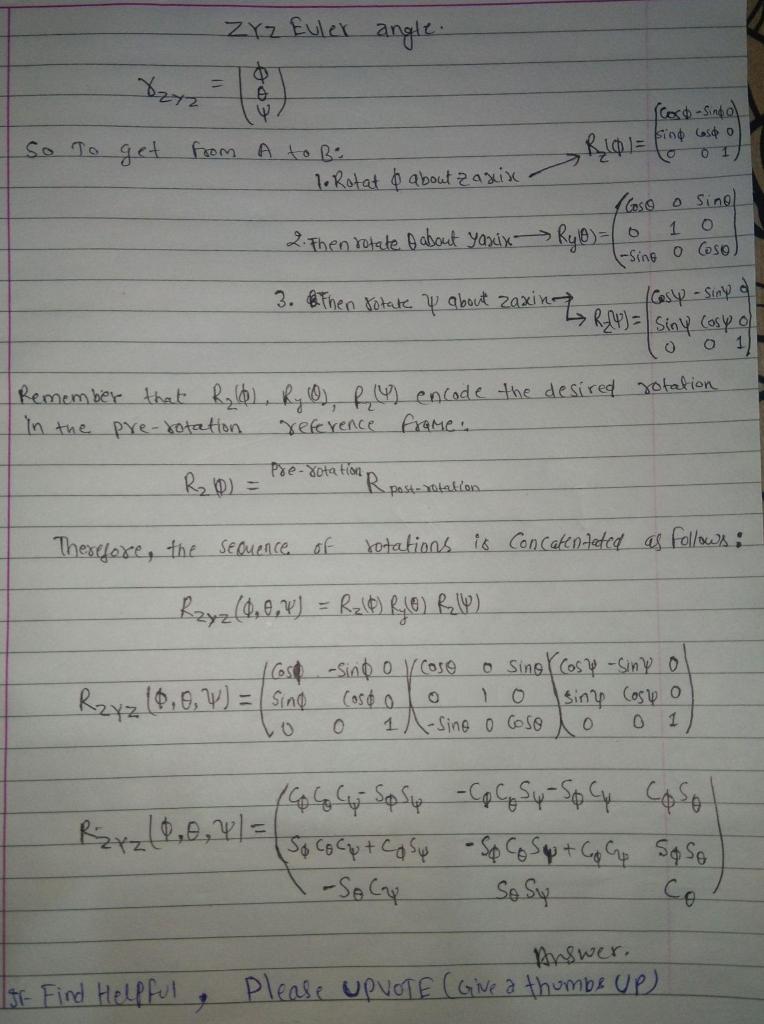 ZYZ Euler angle.
γZYZ = (ϕ
θ
ψ)
So To get from A to B:
1. Rotat ϕ about z axix → Rz(ϕ) = (Cosϕ -Sinϕ 0
Sinϕ Cosϕ 0
0 0 1)
2. Then rotate θ about yaxix → Ry(θ) = (Cosθ 0 Sinθ
0 1 0
-Sinθ 0 Cosθ)
3. Then rotate ψ about zaxix → Rz(ψ) = (Cosψ -Sinψ 0
Sinψ Cosψ 0
0 0 1)
Remember that Rz(ϕ), Ry(θ), Rz(ψ) encode the desired rotation
in the pre-rotation reference frame:
Rz(ϕ) = Pre-rotation R post-rotation
Therefore, the sequence of rotations is Concatentated as follows:
RZYZ(ϕ,θ,ψ) = Rz(ϕ) Ry(θ) Rz(ψ)
RZYZ(ϕ,θ,ψ) = (Cosϕ -Sinϕ 0)(Cosθ 0 Sinθ)(Cosψ -Sinψ 0)
(Sinϕ Cosϕ 0)(0 1 0)(Sinψ Cosψ 0)
(0 0 1)(-Sinθ 0 Cosθ)(0 0 1)
RZYZ(ϕ,θ,ψ) = (CϕCθCψ-SϕSψ -CϕCθSψ-SϕCψ CϕSθ
SϕCθCψ+CϕSψ -SϕCθSψ+CϕCψ SϕSθ
-SθCψ SθSψ Cθ)
Answer.
If Find Helpful, Please UPVOTE (Give a thumbs UP)